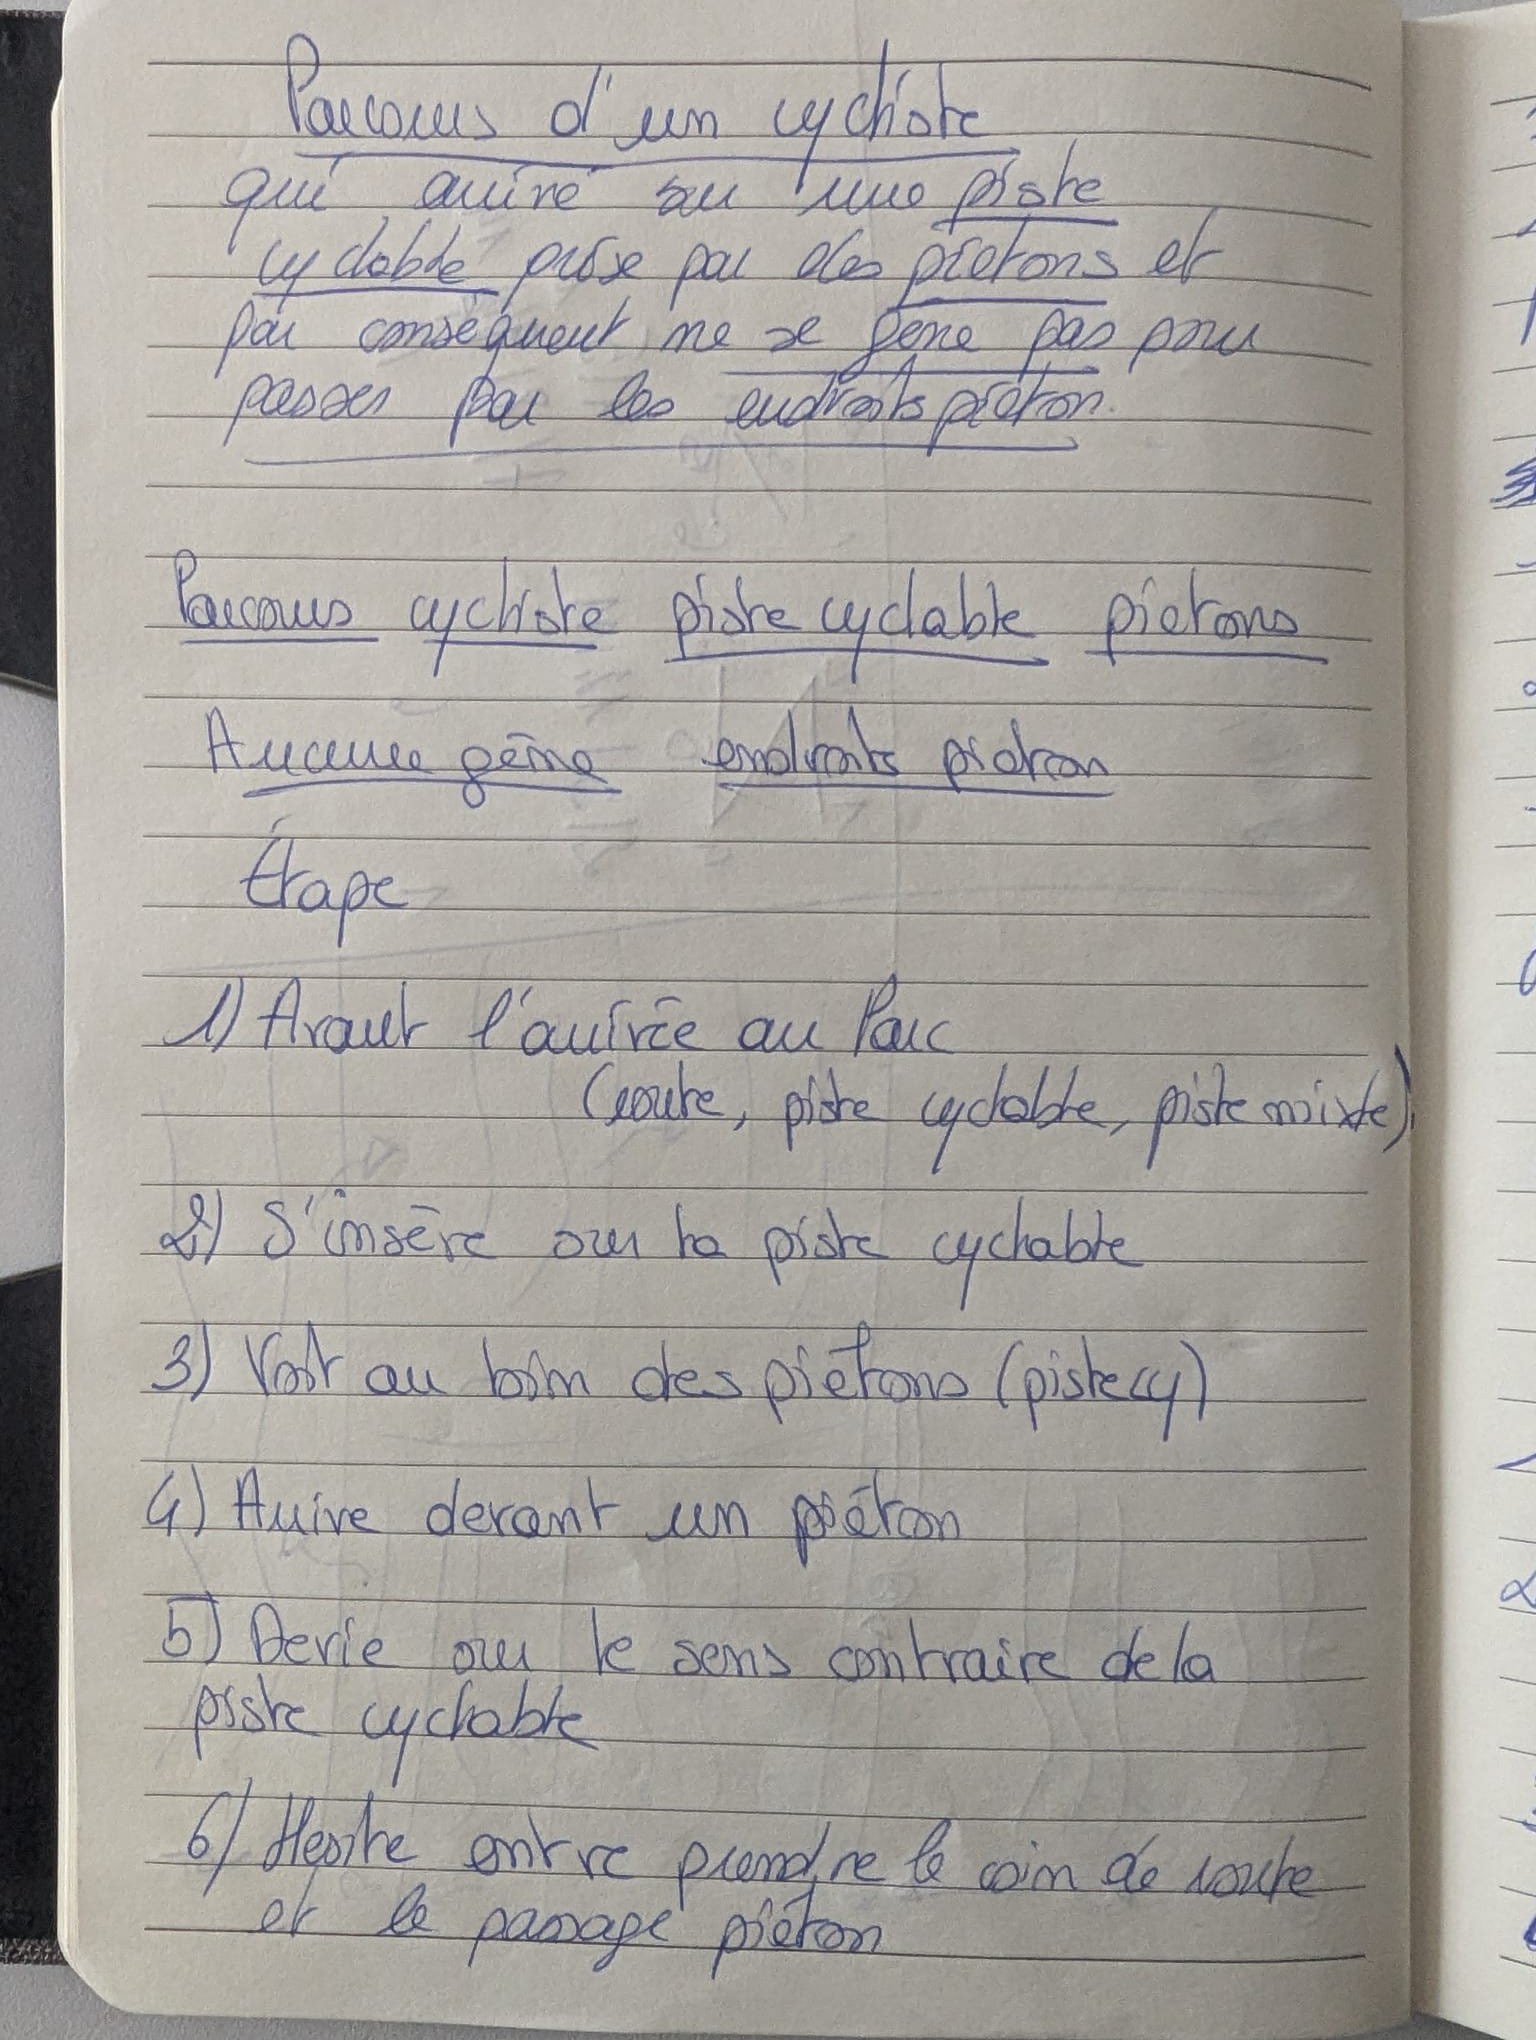 Parcours d'un cycliste
qui arrive sur une piste
cyclable prise par des piétons et
par conséquent ne se gêne pas pour
passer par les endroits piéton.
Parcours cycliste piste cyclable piétons
Aucune gêne endroits piéton
Étape
1) Avant l'arrivée au Parc
(route, piste cyclable, piste mixte)
2) S'insère sur la piste cyclable
3) Voit au loin des piétons (piste cy)
4) Arrive devant un piéton
5) Devie sur le sens contraire de la
piste cyclable
6) Hesite entre prendre le coin de route
et le passage piéton